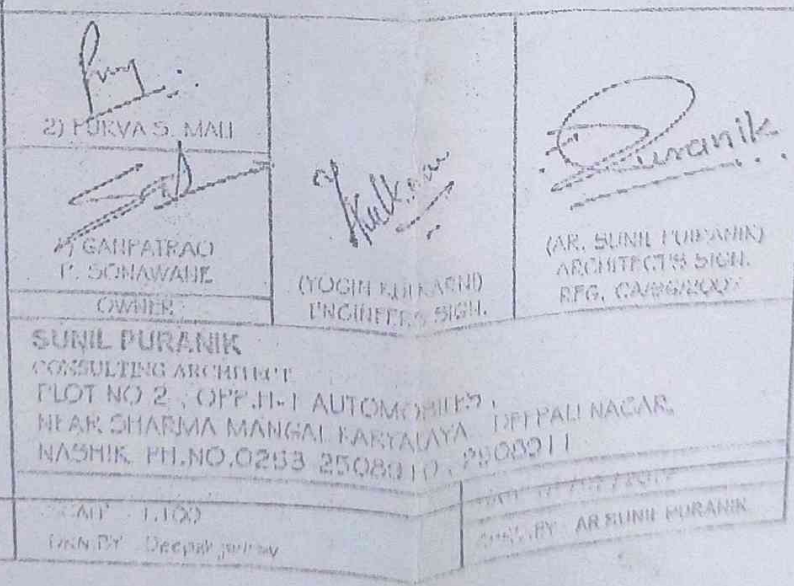 2) PURVA S. MALI
GANPATRAO
P. SONAWANE
OWNER
(YOGIN KULKARNI)
ENGINEER'S SIGN.
Puranik
(AR. SUNIL PURANIK)
ARCHITECT'S SIGN.
REG. CA/
SUNIL PURANIK
CONSULTING ARCHITECT
PLOT NO 2, OPP.H-1 AUTOMOBILES,
NEAR SHARMA MANGAL KARYALAYA DEEPALI NAGAR,
NASHIK. PH.NO.0253 2508910, 2508911
SCALE 1:100
DRN.BY Deepak
BY AR SUNIL PURANIK